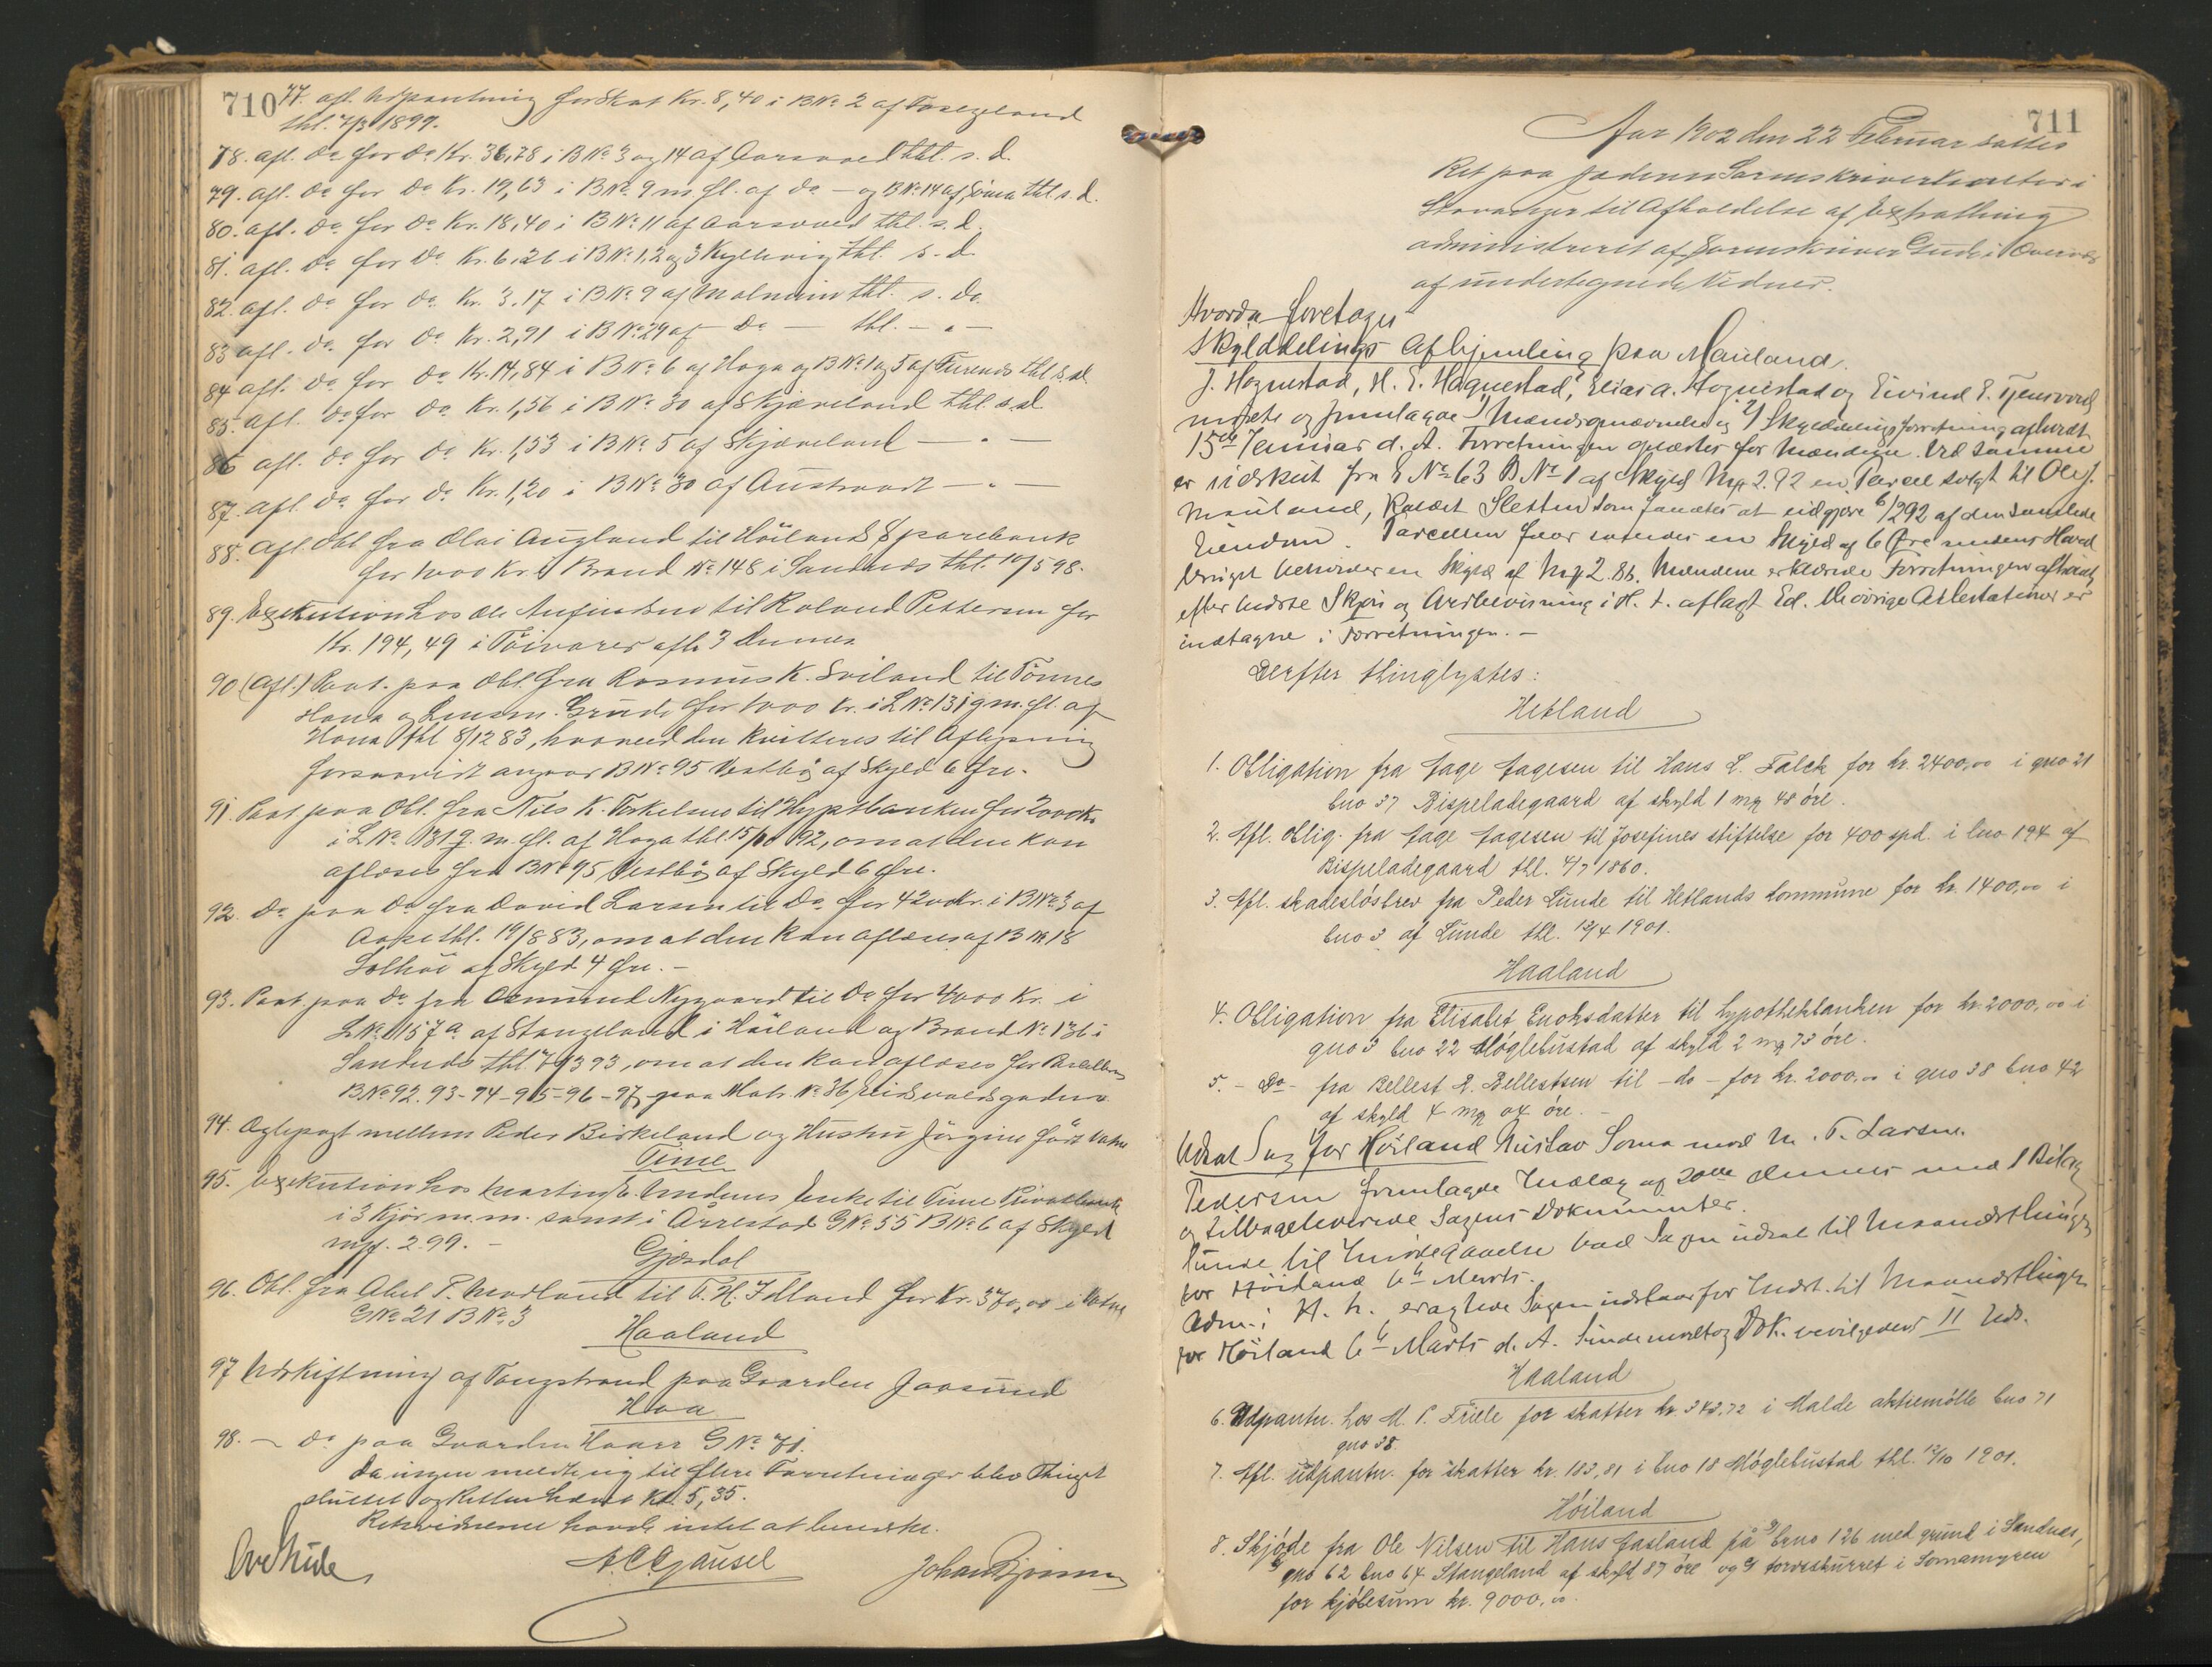 710
77. afl. Udpantning for Skat Kr. 8,40 i BNo 2 af
thl. 7/3 1899.
78. afl. do for do Kr. 36,78 i BNo 3 og 14 af Aarsvoll thl. s. d.
79. afl. do for do Kr. 19,63 i BNo 9 m fl. af do - og BNo 14 af Soma thl. s. d.
80. afl. do for do Kr. 18,40 i BNo 11 af Aarsvoll thl. s. d.
81. afl. do for do Kr. 6,26 i BNo 1, 2 og 3 Kyllesvig thl. s. d.
82. afl. do for do Kr. 3.17 i BNo 9 af Malmein thl. s. do
83 afl. do for do Kr. 2,91 i BNo 29 af - do - thl. - " -
84 afl. do for do Kr. 14,84 i BNo 6 af Hogn og BNo 1 og 5 af thl s. d.
85. afl. do for do Kr. 1,56 i BNo 30 af Skjæveland thl. s. d.
86 afl. do for do Kr. 1,53 i BNo 5 af Skjæveland - " -
87. afl. do for do Kr. 1,20 i BNo 30 af Austraadt - " -
88. afl. Obl fra Olai Augland til Höilands Sparebank
for 1000 Kr. i Brand No 148 i Sandnes thl. 10/5 98.
89. Exekution hos Ole Anfindsen til Roland Pettersen for
Kr. 194,49 i afh. 3 dennes
90 (Afl.) Paat. paa Obl. fra Rasmus K. Sviland til Tönnes
Hana og Grude for 1000 Kr. i LNo 131g m. fl. af
Hana thl 8/12 83, hvorved den kvitteres til Aflysning
forsaavidt angaar BNo 95 Vestbö af Skyld 6 Øre.
91. Paat paa Obl. fra Nils K. Torkelsen til Hypothbanken for 2000 Kr.
i LNo 131g m. fl. af Hoga thl. 15/10 92, om at den kan
afløses fra BNo 95 Vestbö af Skyld 6 Øre.
92. do paa do fra David Larsen til do for 4200 Kr. i BNo 3 af
thl. 19/8 83, om at den kan aflæses af BNo 18
Solhöi af Skyld 4 Øre. -
93. Paat. paa do fra Osmund Nygaard til do for 4000 Kr. i
LNo 157a af Stangeland i Höiland og Brand No 136 i
Sandnes thl 93, om at den kan afløses for Parcellerne
BNo 92. 93 - 94 - 95 - 96 - 97 paa Matr. No 36 Eidsvoldsgaden.
94. Ægtepagt mellem Peder Birkeland og Hustru Jörgine född Vatne
Time
95. Exekution hos Enke til Time Privatbank
i 3 Kjör m.m. samt i Årrestad GNo 55 BNo 6 af Skyld
mrk. 2.99. -
Gjesdal
96. Obl. fra Abel P. Madland til T. H. for Kr. 370,00 i
GNo 21 BNo 3
Haaland
97 Udskiftning af Tangstrand paa Gaarden Joasund
Haa
98. - do paa Gaarden Haarr GNo 71.
Da ingen meldte sig til flere Forretninger blev Thinget
sluttet og Retten hævet Kl. 5,35.
Retsvidnerne havde intet at bemerke.
Ove Gude
A. C. Gausel
Johan
711
Aar 1902 den 22 Februar sattes
Ret paa Jæderens Sorenskriverkontor i
Stavanger til Afholdelse af Extrathing
administreret af Sorenskriver Gude i Overvær
af undertegnede Vidner.
Hvorda foretoges
Skylddelings Afhjemling paa Mauland.
J. Hognestad, H. E. Hognestad, Elias A. Hognestad og Eivind E. Tjensvold
mødte og fremlagde 1/ Mændsopnævnelse og 2/ Skylddelingsforretning afholdt
15de Januar d. A. Forretningen oplæstes for Mændene. Ved samme
er udskilt fra GNo 63 BNo 1 af Skyld Mrk 2.92 en Parcel solgt til Ole J.
Mauland, kaldet Sletten som fandtes at udgjøre 6/292 af den samlede
Eiendom. Parcellen faar saaledes en Skyld af 6 Øre medens Hoved
bruget beholder en Skyld af Mrk 2.86. Mændene erklærede Forretningen afholdt
efter bedste Skjøn og Overbevisning i H. t. aflagt Ed. De øvrige Attestationer er
indtagne i Forretningen. -
Derefter thinglystes:
Hetland
1. Obligation fra Aage Aagesen til Hans L. Falck for kr. 2400,00 i gno 21
bno 37 Bispeladegaard af skyld 1 mrk 48 öre.
2. Afl. oblig. fra Aage Aagesen til Josefines stiftelse for 400 spd. i bno 194 af
Bispeladegaard thl. 4/7 1860.
3. Afl. skadeslösbrev fra Peder Lunde til Hetlands kommune for kr. 1400,00 i
bno 3 af Lunde thl. 13/4 1901.
Haaland
4. Obligation fra Elisabet Enoksdatter til hypothekbanken for kr. 2000,00 i
gno 3 bno 22 Möglebustad af skyld 2 mrk 73 öre.
5. - Do - fra Bellest R. Bellestsen til - do - for kr. 2000,00 i gno 38 bno 42
af skyld 4 mrk 04 öre. -
Udsat Sag for Höiland Gustav Soma mod M. T. Larsen.
Pedersen fremlagde Indlæg af 20de dennes med 1 Bilag
og tilbageleverede Sagens Dokumenter.
Lunde til Imødegaaelse bad Sagen udsat til Maanedsthinget
for Höiland 6te Marts.
Adm. i H. h. eragtede Sagen udsatt for Indst. til Maanedsthinget
for Höiland 6te Marts d. A. Lunde modtog Dok. bevilgedes II Uds.
Haaland
6. Udpantn. hos M. P. Friele for skatter kr. 343,72 i Malde aktiemölle bno 71
gno 38.
7. Afl. udpantn. for skatter kr. 183,81 i bno 18 Möglebustad thl. 12/10 1901.
Höiland
8. Skjöde fra Ole Nilsen til Hans Aasland på a/ brno 126 med grund i Sandnes,
gno 62 bno 64 Stangeland af skyld 87 öre og torvskurret i Somamyren
for kjöbesum kr. 9000,00.